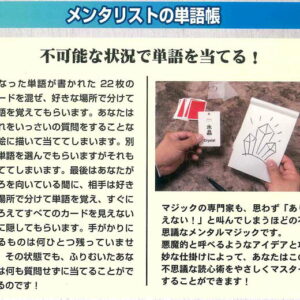 メンタリストの単語帳
不可能な状況で単語を当てる！
なった単語が書かれた 22枚の
ードを混ぜ、好きな場所で分けて
語を覚えてもらいます。あなたは
れをいっさいの質問をすることな
絵に描いて当ててしまいます。別
単語を選んでもらいますがそれも
ててしまいます。最後はあなたが
ろを向いている間に、相手は好き
場所で分けて単語を覚え、すぐに
ろえてすべてのカードを見えない
に隠してもらいます。手がかりに
るものは何ひとつ残っていませ
。その状態でも、ふりむいたあな
は何も質問せずに当てることがで
るのです！
水晶
Crystal
マジックの専門家も、思わず「あり
えない！」と叫んでしまうほどの不
思議なメンタルマジックです。
悪魔的と呼べるようなアイデアと巧
妙な仕掛けによって、あなたはこの
不思議な読心術をやさしくマスター
することができます！